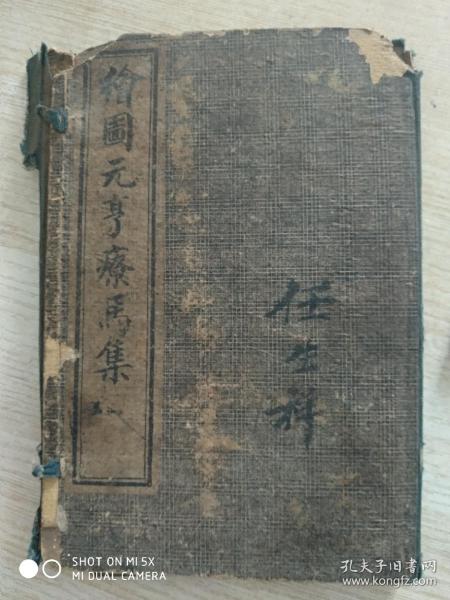 繪圖元亨療馬集
任生科
SHOT ON MI 5X
MI DUAL CAMERA
孔夫子旧书网
www.kongfz.com